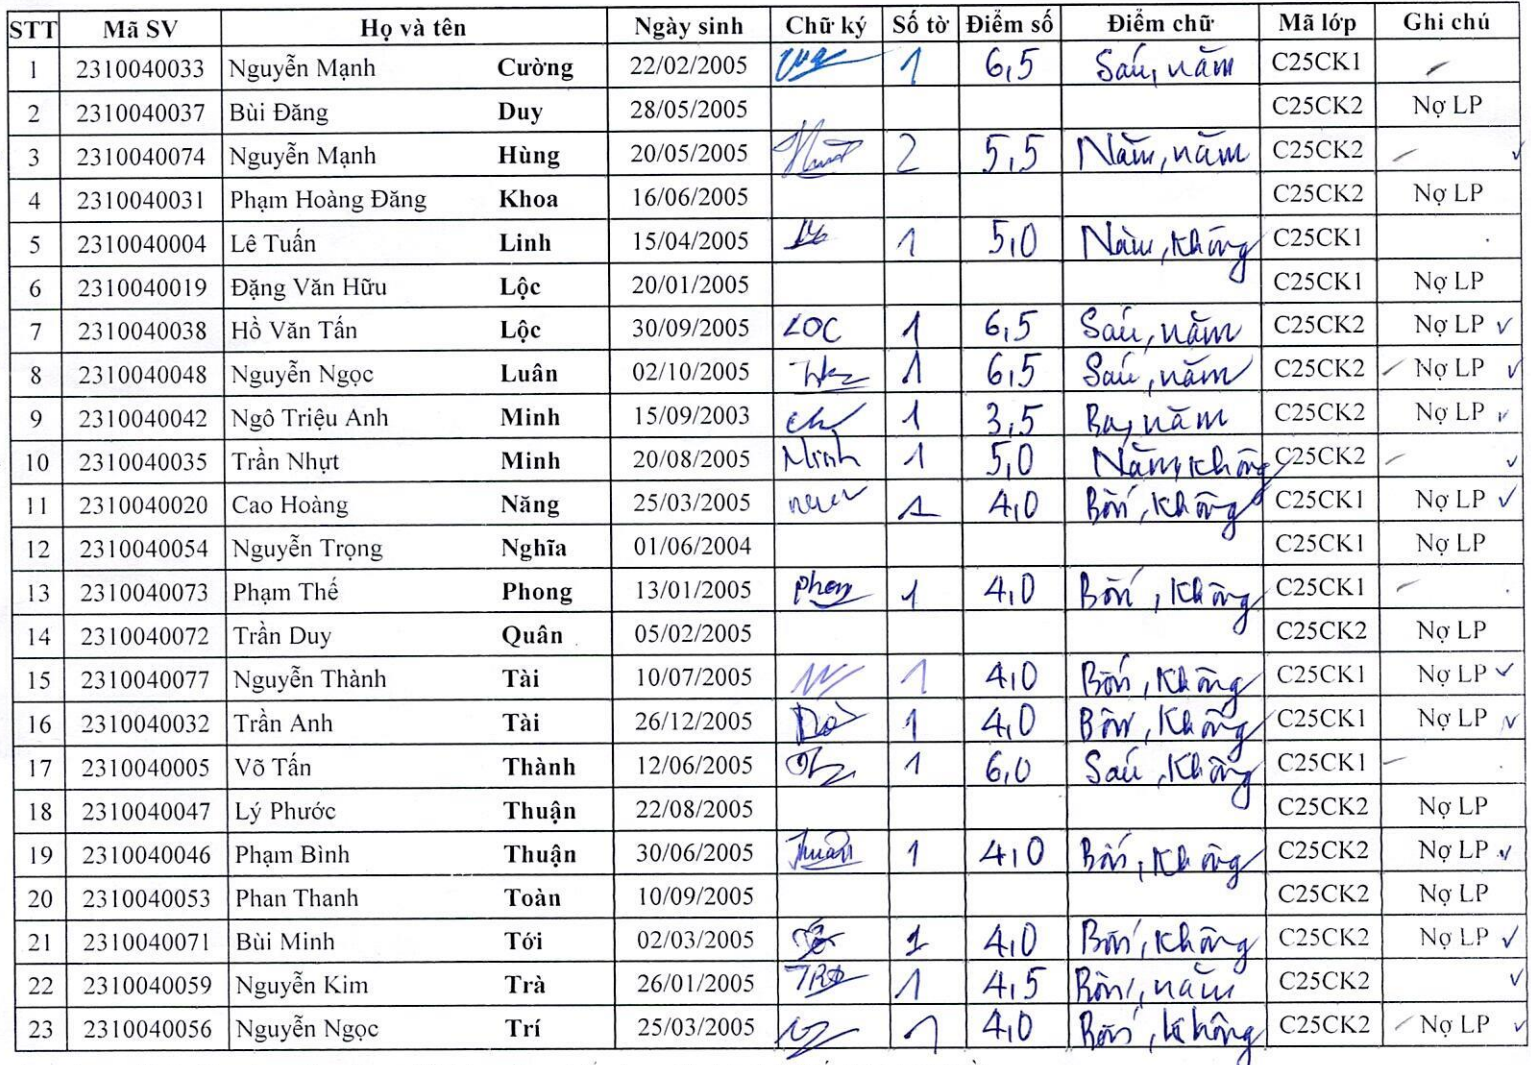 STT Mã SV Họ và tên Ngày sinh Chữ ký Số tờ Điểm số Điểm chữ Mã lớp Ghi chú
1 2310040033 Nguyễn Mạnh Cường 22/02/2005 1 6,5 Sáu, năm C25CK1
2 2310040037 Bùi Đăng Duy 28/05/2005 C25CK2 Nợ LP
3 2310040074 Nguyễn Mạnh Hùng 20/05/2005 2 5,5 Năm, năm C25CK2 ✓
4 2310040031 Phạm Hoàng Đăng Khoa 16/06/2005 C25CK2 Nợ LP
5 2310040004 Lê Tuấn Linh 15/04/2005 1 5,0 Năm, không C25CK1
6 2310040019 Đặng Văn Hữu Lộc 20/01/2005 C25CK1 Nợ LP
7 2310040038 Hồ Văn Tấn Lộc 30/09/2005 LOC 1 6,5 Sáu, năm C25CK2 Nợ LP ✓
8 2310040048 Nguyễn Ngọc Luân 02/10/2005 1 6,5 Sáu, năm C25CK2 Nợ LP ✓
9 2310040042 Ngô Triệu Anh Minh 15/09/2003 1 3,5 Ba, năm C25CK2 Nợ LP ✓
10 2310040035 Trần Nhựt Minh 20/08/2005 Minh 1 5,0 Năm, không C25CK2 ✓
11 2310040020 Cao Hoàng Năng 25/03/2005 1 4,0 Bốn, không C25CK1 Nợ LP ✓
12 2310040054 Nguyễn Trọng Nghĩa 01/06/2004 C25CK1 Nợ LP
13 2310040073 Phạm Thế Phong 13/01/2005 phong 1 4,0 Bốn, không C25CK1
14 2310040072 Trần Duy Quân 05/02/2005 C25CK2 Nợ LP
15 2310040077 Nguyễn Thành Tài 10/07/2005 1 4,0 Bốn, không C25CK1 Nợ LP ✓
16 2310040032 Trần Anh Tài 26/12/2005 1 4,0 Bốn, không C25CK1 Nợ LP ✓
17 2310040005 Võ Tấn Thành 12/06/2005 1 6,0 Sáu, không C25CK1
18 2310040047 Lý Phước Thuận 22/08/2005 C25CK2 Nợ LP
19 2310040046 Phạm Bình Thuận 30/06/2005 Thuận 1 4,0 Bốn, không C25CK2 Nợ LP ✓
20 2310040053 Phan Thanh Toàn 10/09/2005 C25CK2 Nợ LP
21 2310040071 Bùi Minh Tới 02/03/2005 1 4,0 Bốn, không C25CK2 Nợ LP ✓
22 2310040059 Nguyễn Kim Trà 26/01/2005 1 4,5 Bốn, năm C25CK2 ✓
23 2310040056 Nguyễn Ngọc Trí 25/03/2005 1 4,0 Bốn, không C25CK2 Nợ LP ✓